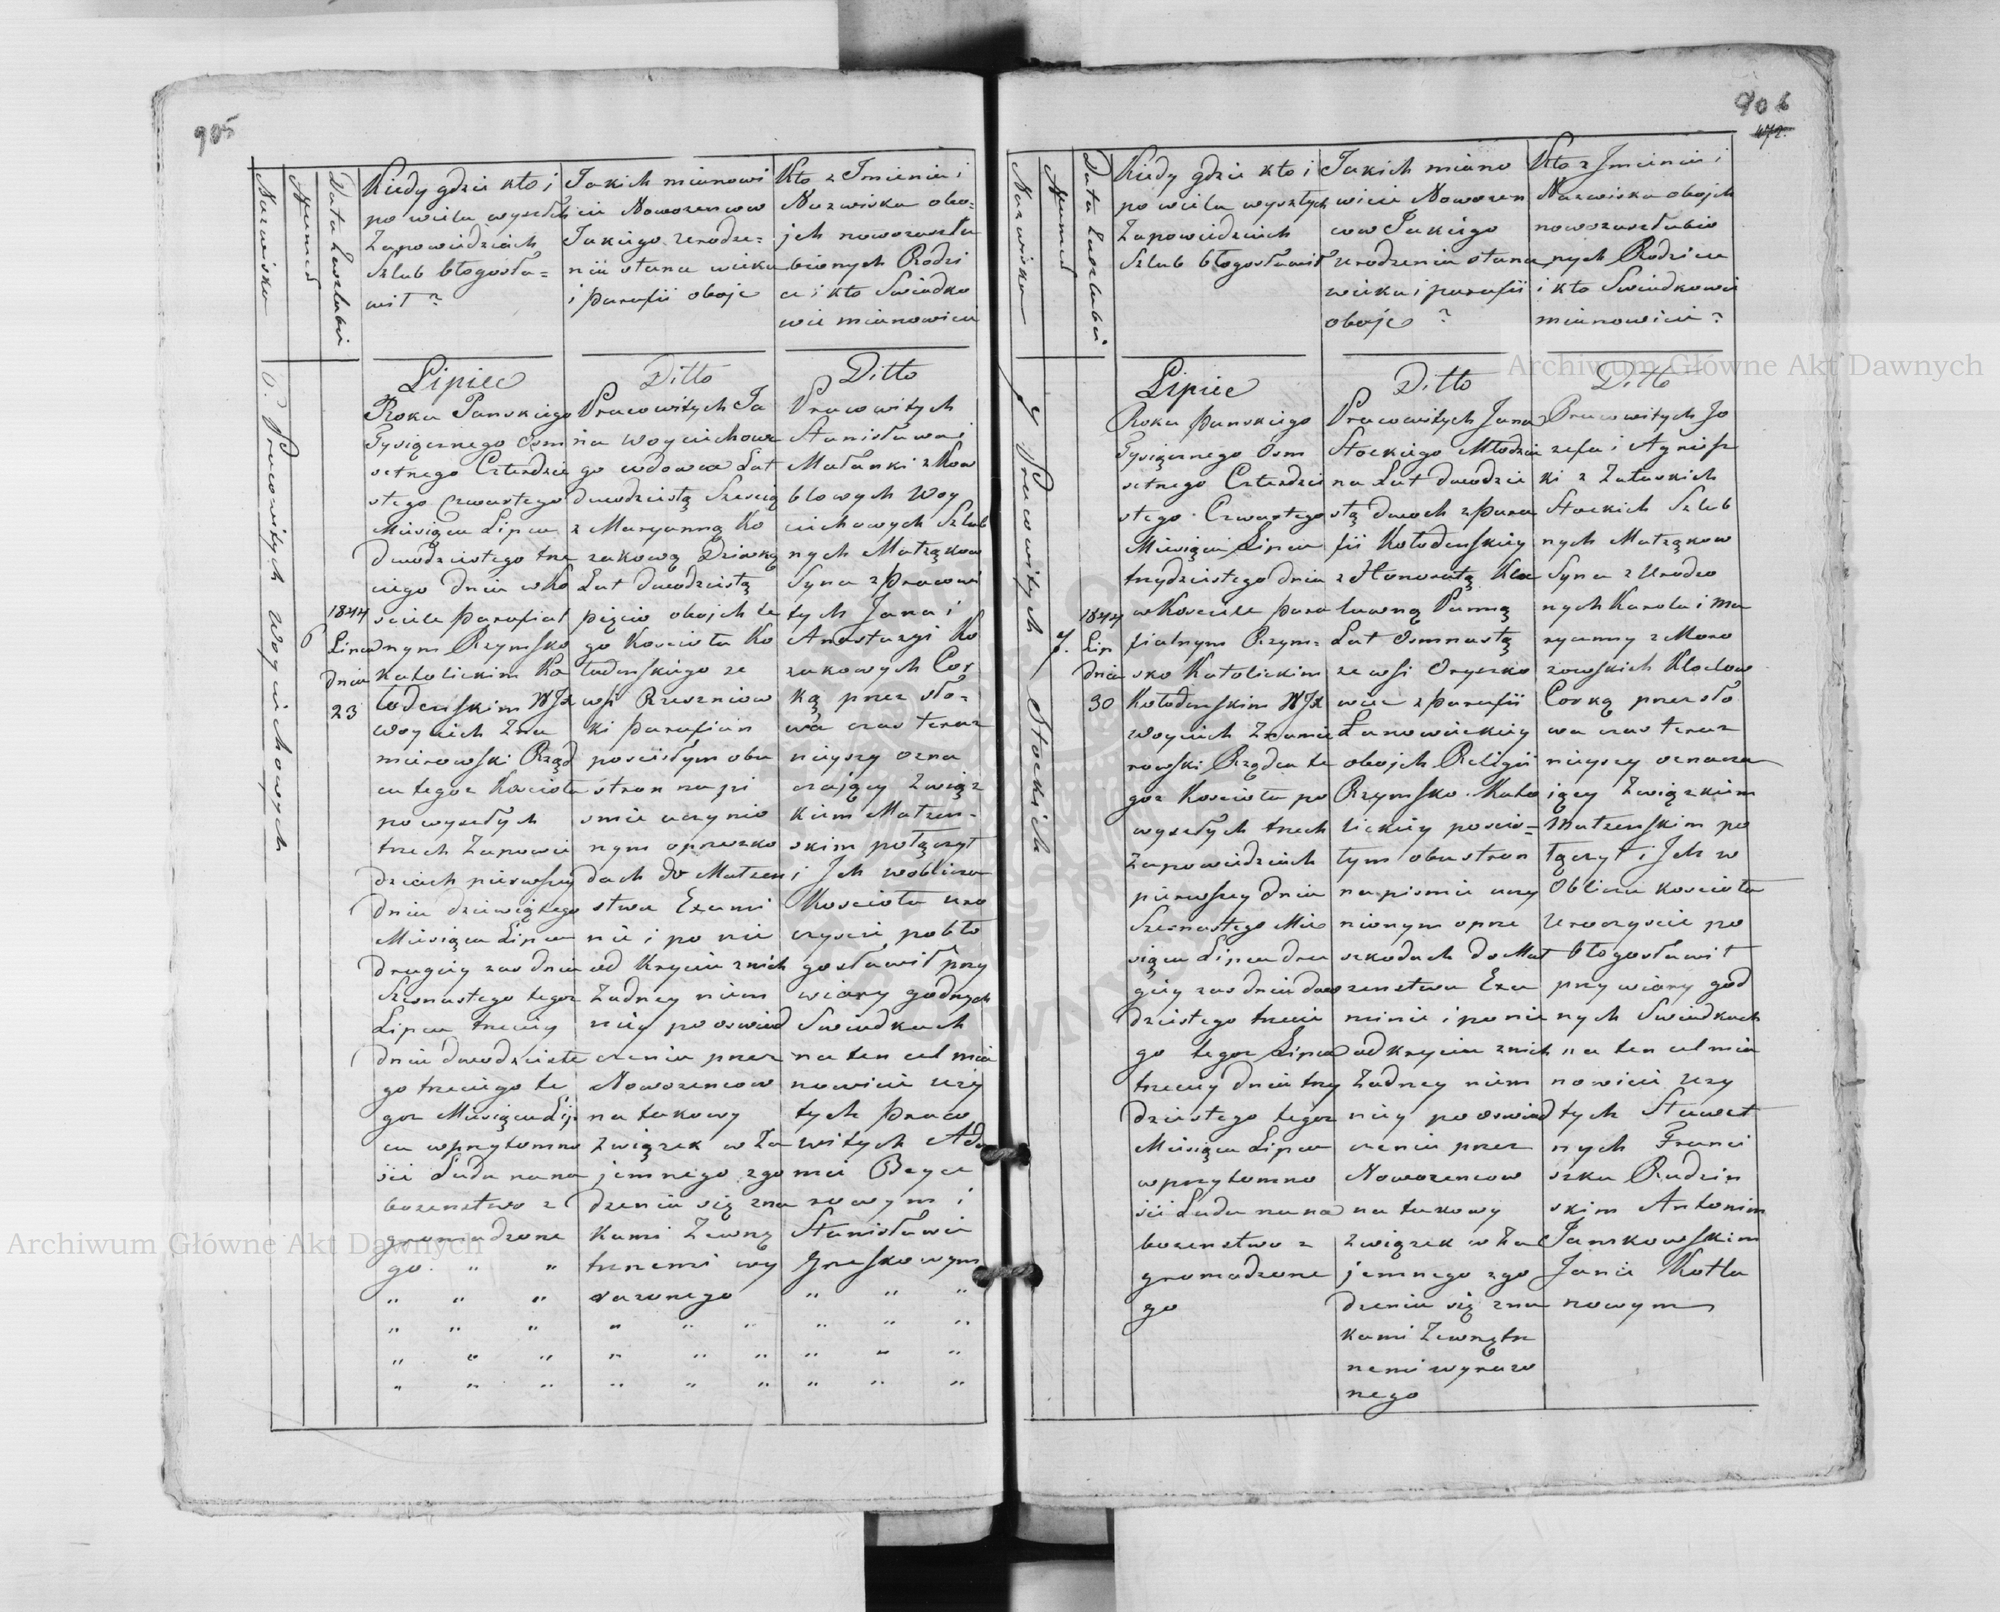 905
Nazwisko
Numer
Data Zaszlubin
Kiedy gdzie kto i
po wielu wyszłych
Zapowiedziach
Szlub błogosła=
wił ?
Jakich mianowi
cie Nowożencow
Jakiego urodze=
nia stanu wieku
i parafii oboje
Kto z Imienia i
Nazwiska obo=
jch nowozaszlu
bionych Rodzi
ce i kto Swiadko
wie mianowicie
6. Pracowitych Woyciechowych
6
1844
Lipca
dnia
23
Lipiec
Roku Panskiego
Tysiącznego Osm
setnego Czterdzie
stego Czwartego
Miesiąca Lipca
dwudziestego trze
ciego dnia w Ko
sciele parafial
nym Rzymsko
Katolickim Ko
łodenskim WJX
Woyciech Zna
mierowski Rząd
ca tegoz Kościoła
po wyszłych
trzech Zapowie
dziach pierwszey
dnia dziewiątego
Miesiąca Lipca
drugiey zas dnia
Szesnastego tegoz
Lipca trzeciey
dnia dwudzieste
go trzeciego te
goz Miesiąca Lip
ca w przytomno
ści Ludu na na
bożenstwo z
gromadzone
go " "
" " "
" " "
" " "
" " "
Ditto
Pracowitych Ja
na Woyciechowe
go wdowca Lat
dwadziestą Szescią
z Maryanną Ko
zakową Dziewką
Lat dwadziestą
pięcio obojch te
go Kościoła Ko
łodenskiego ze
wsi Rzeszniow
ki parafian
posciisłym obu
stron na pi
smie uczynio
nym oprzeszko
dach do Małżen
stwa Exami
nie i po nie
od kryciu z nich
Zadney niem
niey po oswiad
czeniu przez
Nowożencow
na takowy
związek w Za
jemnego zgo
dzenia się zna
kami Zewnę
trznemi wy
rażonego
" " "
" " "
" " "
Ditto
Pracowitych
Stanisława i
Małanki z Kow
blowych Woy
ciechowych Szlub
nych Małżąkow
Syna z Pracowi
tych Jana i
Anastazyi Ko
zakowych Cor
ką przez sło=
wa czas teraz
nieyszy ozna
czaiący Związ
kiem Małżen-
skim połączył
i Jch wobliczu
Kosciola uro
czyscie pobło
gosławił przy
wiary godnych
Swiadkach
na ten cel mia
nowicie uży
tych praco
witych Ada
mie Beyce
rowym i
Stanisławie
Greskowym
" " "
" " "
" " "
" " "
906
Nazwisko
Numer
Data Zaszlubin
Kiedy gdzie kto i
po wielu wyszłych
Zapowiedziach
Szlub błogosławił
Jakich miano
wicie Nowożen
cow Jakiego
urodzenia stanu
wieku i parafii
oboje ?
Kto z Jmienia i
Nazwiska obojch
nowozaszlubio
nych Rodzice
i kto Swiadkowie
mianowicie ?
7 Pracowitych Stockich
7.
1844
Lip
dnia
30
Lipiec
Roku Panskiego
Tysiącznego Osm
setnego Czterdzie
stego Czwartego
Miesiąca Lipca
trzydziestego dnia
w Kosciele para
fialnym Rzym=
sko Katolickim
Kołodenskim WJX
Woyciech Znamie
rowski Rządca te
goz Kosciola po
wyszłych trzech
Zapowiedziach
pierwszey dnia
Szesnastego Mie
siąca Lipca dru
giey zas dnia dwu
dziestego trzecie
go tegoz Lipca
trzeciey dnia trzy
dziestego tegoz
Miesiąca Lipca
w przytomno
ści Ludu na na
bożenstwo z
gromadzone
go
Ditto
Pracowitych Jana
Stockiego Młodzie
na Lat dwudzie
stą dwoch z para
fii Kołodenskiey
z Honoratą Klo
cławną Panną
Lat Osmnastą
ze wsi Oryszko
wiec z parafii
Łanowieckiey
obojch Religii
Rzymsko Kato
lickiey poscis=
łym obu stron
na pismie uczy
nionym oprze
szkodach do Mał
żenstwa Exa
minie i po nie
odkryciu z nich
Zadney niem
niey po oswiad
czeniu przez
Nowożencow
na takowy
związek w Za
jemnego zgo
dzenia się zna
kami Zewnętrz
nemi wyrażo
nego
Ditto
Pracowitych Jo
zefa i Agniesz
ki z Załuskich
Stockich Szlub
nych Małżąkow
Syna z Urodzo
nych Karola i Ma
ryanny z Moro
zowskich Klocłow
Corką przez sło
wa czas teraz
nieyszy oznacza
iący Związkiem
Małżenskim po
łączył i Jch w
Obliczu kosciola
Uroczyscie po
błogosławił
przy wiary god
nych Swiadkach
na ten cel mia
nowicie uży
tych Sławet
nych Franci
szku Rudzin
skim Antonim
Jankowskim
Janie Kotla
rowym
Archiwum Główne Akt Dawnych
Archiwum Główne Akt Dawnych